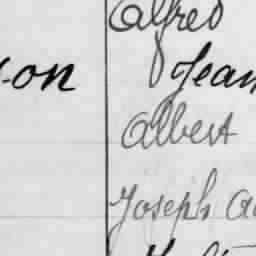 Alfred
-on Jean
Albert
Joseph